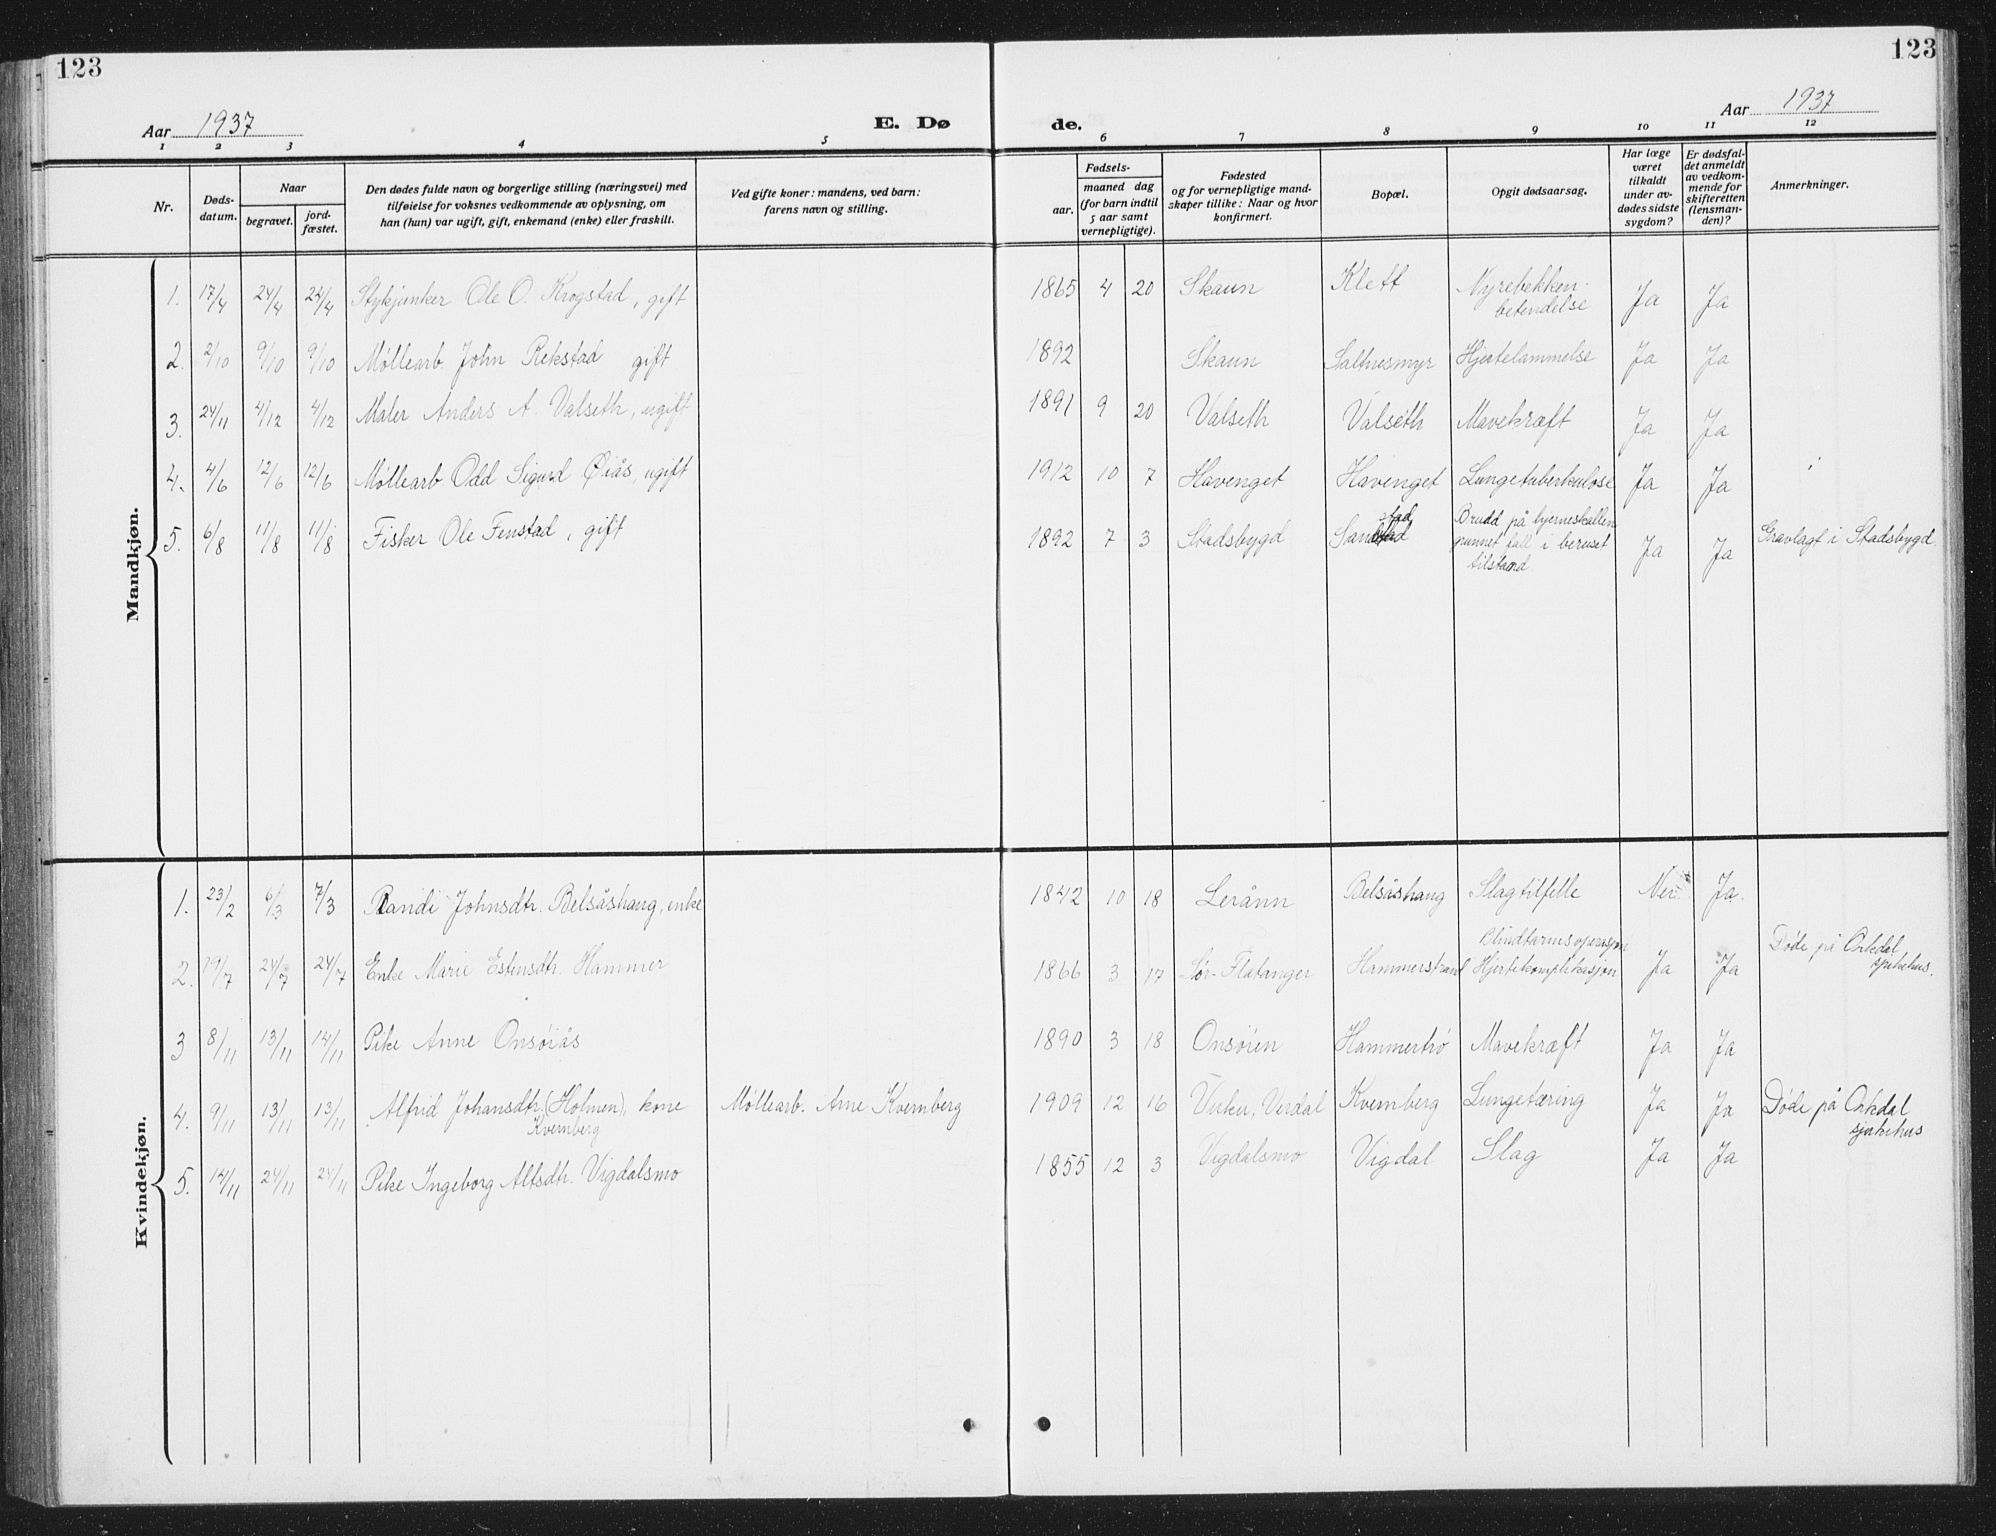 123
123
Aar 1937
E. Dø
de.
Aar 1937
1 2 3 4 5 6 7 8 9 10 11 12
Nr.
Døds-
datum.
Naar
begravet.
jord-
fæstet.
Den dødes fulde navn og borgerlige stilling (næringsvei) med
tilføielse for voksnes vedkommende av oplysning, om
han (hun) var ugift, gift, enkemand (enke) eller fraskilt.
Ved gifte koner: mandens, ved barn:
farens navn og stilling.
Fødsels-
aar.
maaned dag
(for barn indtil
5 aar samt
vernepligtige).
Fødested
og for vernepligtige mand-
skaper tillike: Naar og hvor
konfirmert.
Bopæl.
Opgit dødsaarsag.
Har læge
været
tilkaldt
under av-
dødes sidste
sygdom?
Er dødsfal-
det anmeldt
av vedkom-
mende for
skifteretten
(lensman-
den)?
Anmerkninger.
Mandkjøn.
1. 17/4 24/4 24/4 Stykjunker Ole O. Krogstad, gift 1865 4 20 Skaun Klett Nyrebekken-
betendelse Ja Ja
2. 2/10 9/10 9/10 Møllearb. John Rekstad gift 1892 Skaun Saltnesmyr Hjertelammelse Ja Ja
3. 24/11 4/12 4/12 Maler Anders A. Valseth, ugift 1891 9 20 Valseth Valseth Mavekræft Ja Ja
4. 4/6 12/6 12/6 Møllearb Odd Sigurd Øiås, ugift 1912 10 7 Havenget Havenget Lungetuberkulose Ja Ja
5. 6/8 11/8 11/8 Fisker Ole Fenstad, gift 1892 7 3 Stadsbygd Sandstad Brudd på hjerneskallen
grunnet fall i beruset
tilstand Ja Ja Gravlagt i Stadsbygd.
Kvindekjøn.
1. 23/2 6/3 7/3 Randi Johnsdtr. Belsåshaug, enke 1842 10 18 Lerånn Belsåshaug Slagtilfelle Nei Ja.
2. 19/7 24/7 24/7 Enke Marie Estensdtr. Hammer 1866 3 17 Sør-Flatanger Hammerstrand Blindtarmsoperasjon
Hjertekomplikasjon Ja Ja Døde på Orkdal
sykehus.
3 8/11 13/11 14/11 Pike Anne Onsøiås 1890 3 18 Onsøien Hammertrø Mavekræft Ja Ja
4. 9/11 13/11 13/11 Alfrid Johansdtr. (Holmen), kone
Kvernberg
Møllearb. Arne Kvernberg 1909 12 16 Vuku, Verdal Kvernberg Lungetæring Ja Ja Døde på Orkdal
sjukehus
5. 14/11 24/11 24/11 Pike Ingeborg Altsdtr. Vigdalsmo 1855 12 3 Vigdalsmo Vigdal Slag Ja Ja